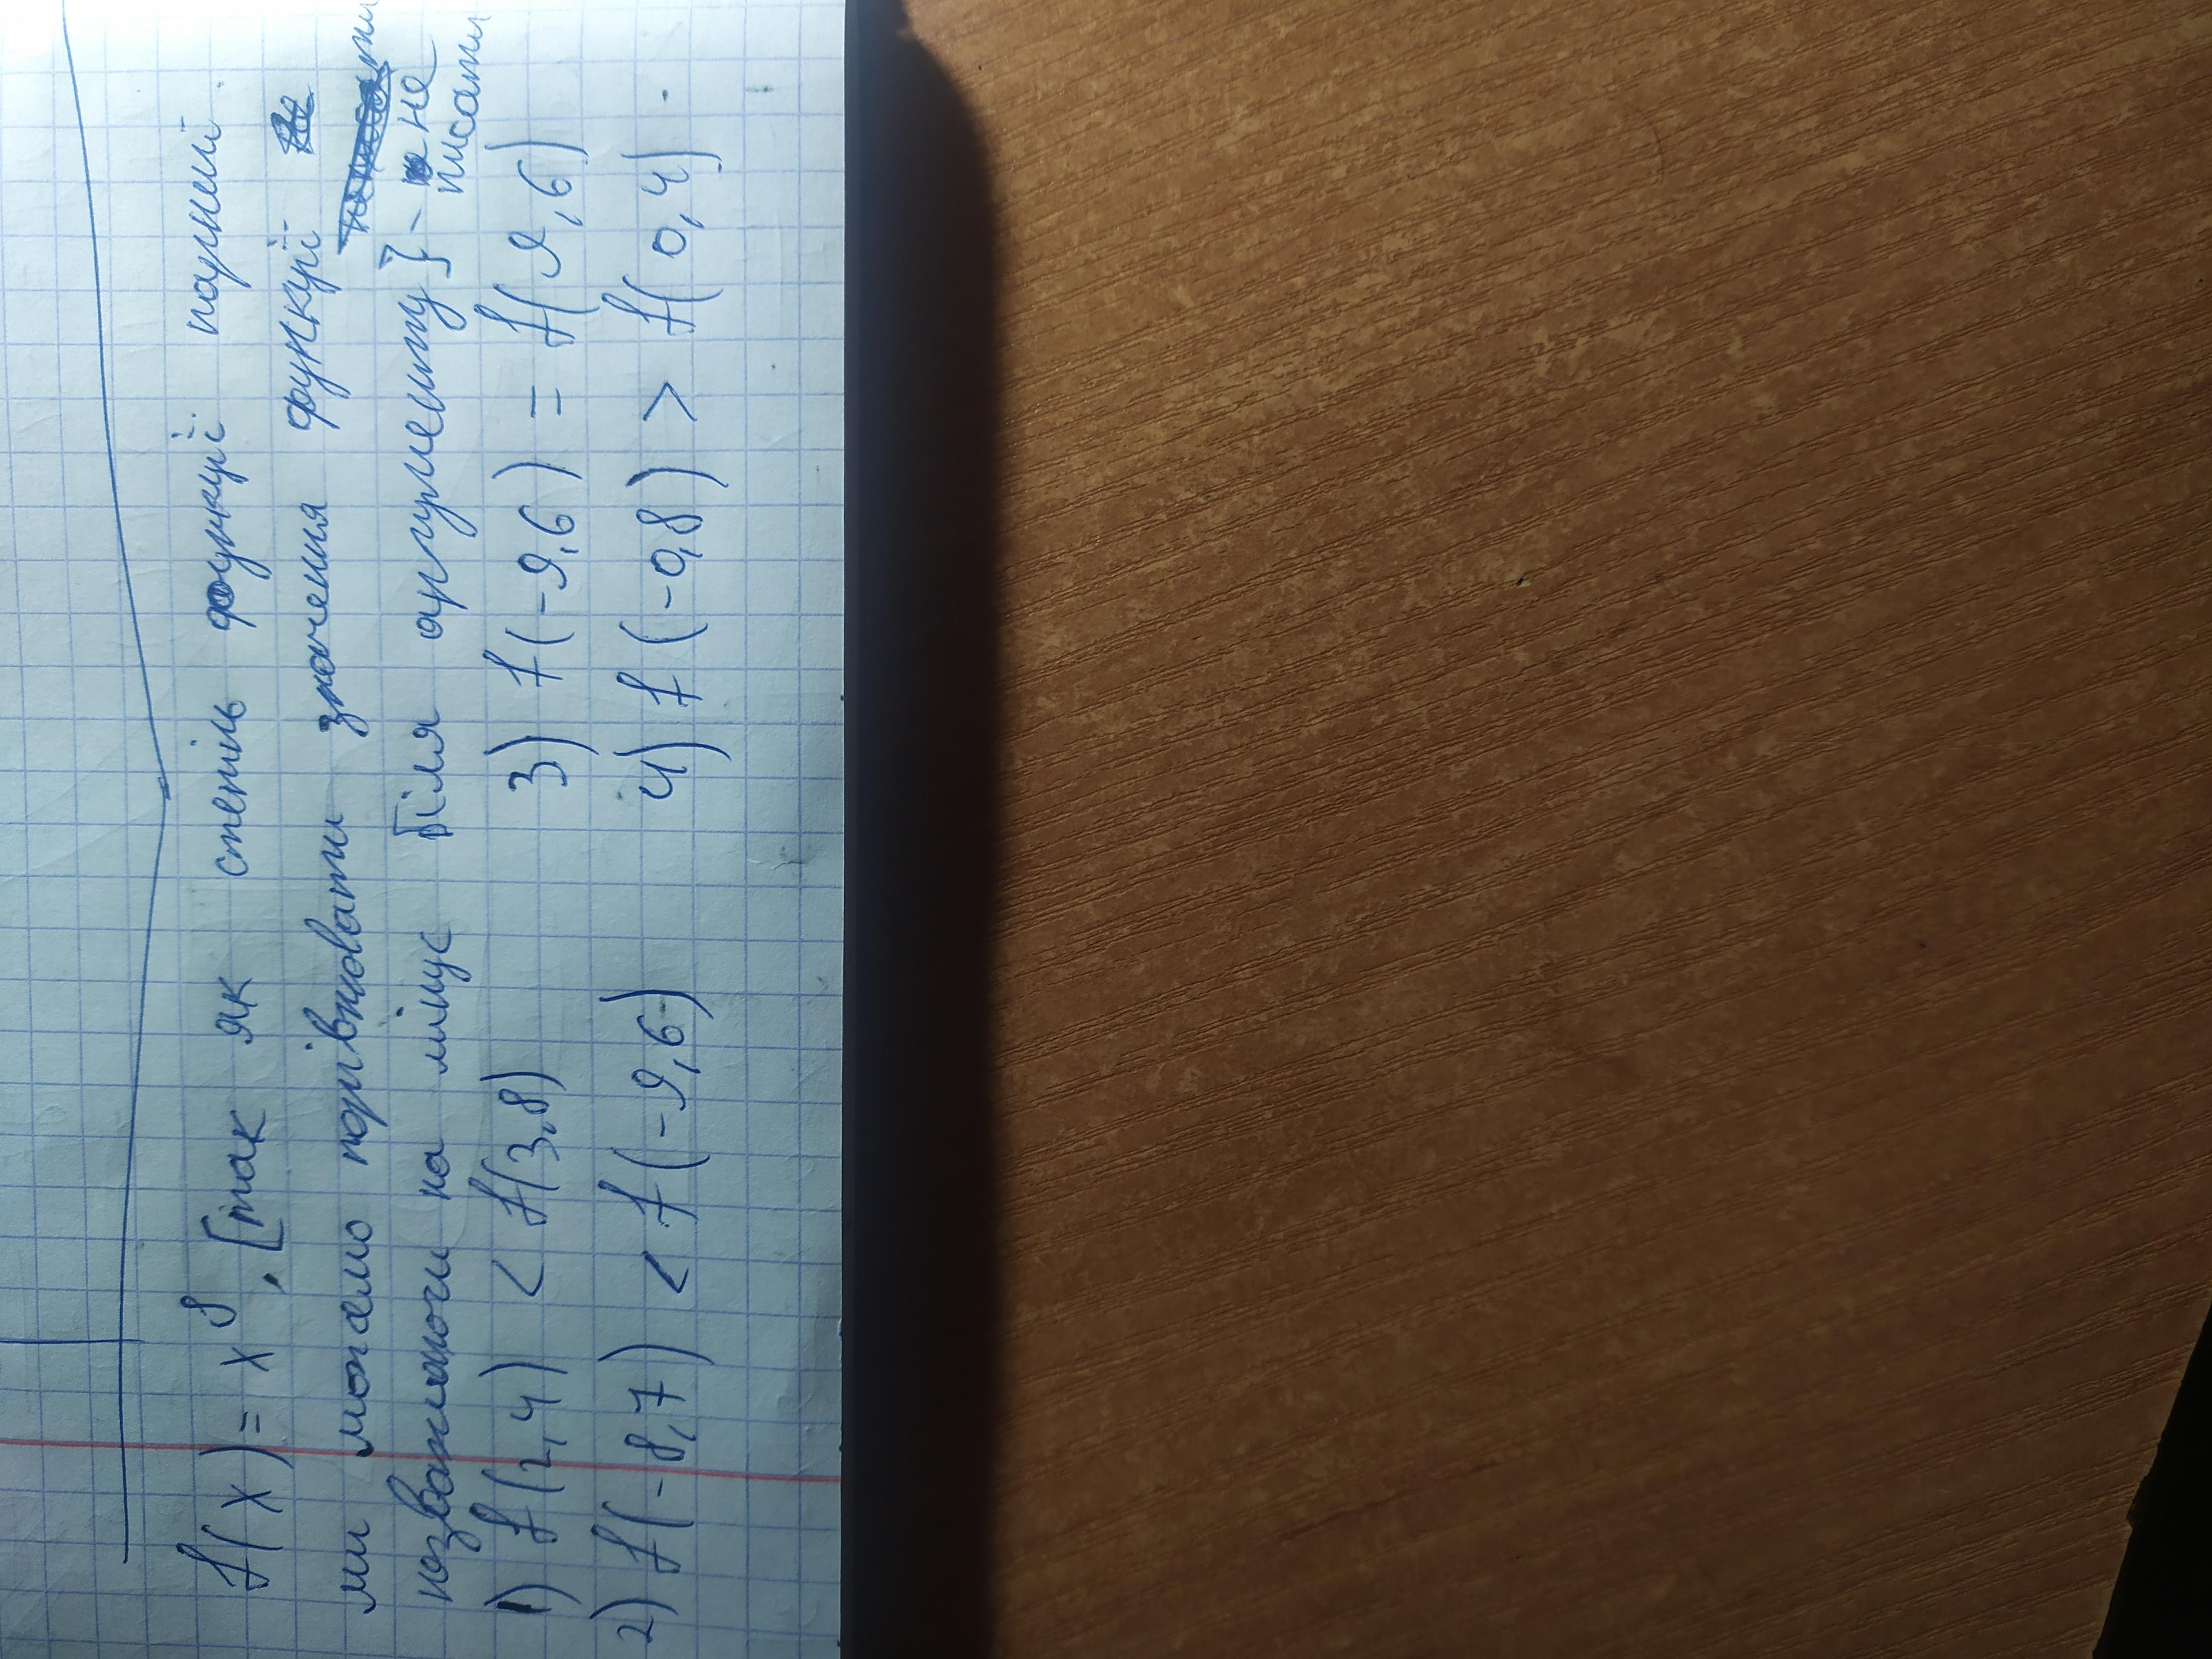 f(x) = x⁸, [так як степінь функції парний
ми можемо порівнювати значення функції
незважаючи на мінус біля аргументу] - не писати
1) f(2,4) < f(3,8) 3) f(-9,6) = f(9,6)
2) f(-8,7) < f(-9,6) 4) f(-0,8) > f(0,4)